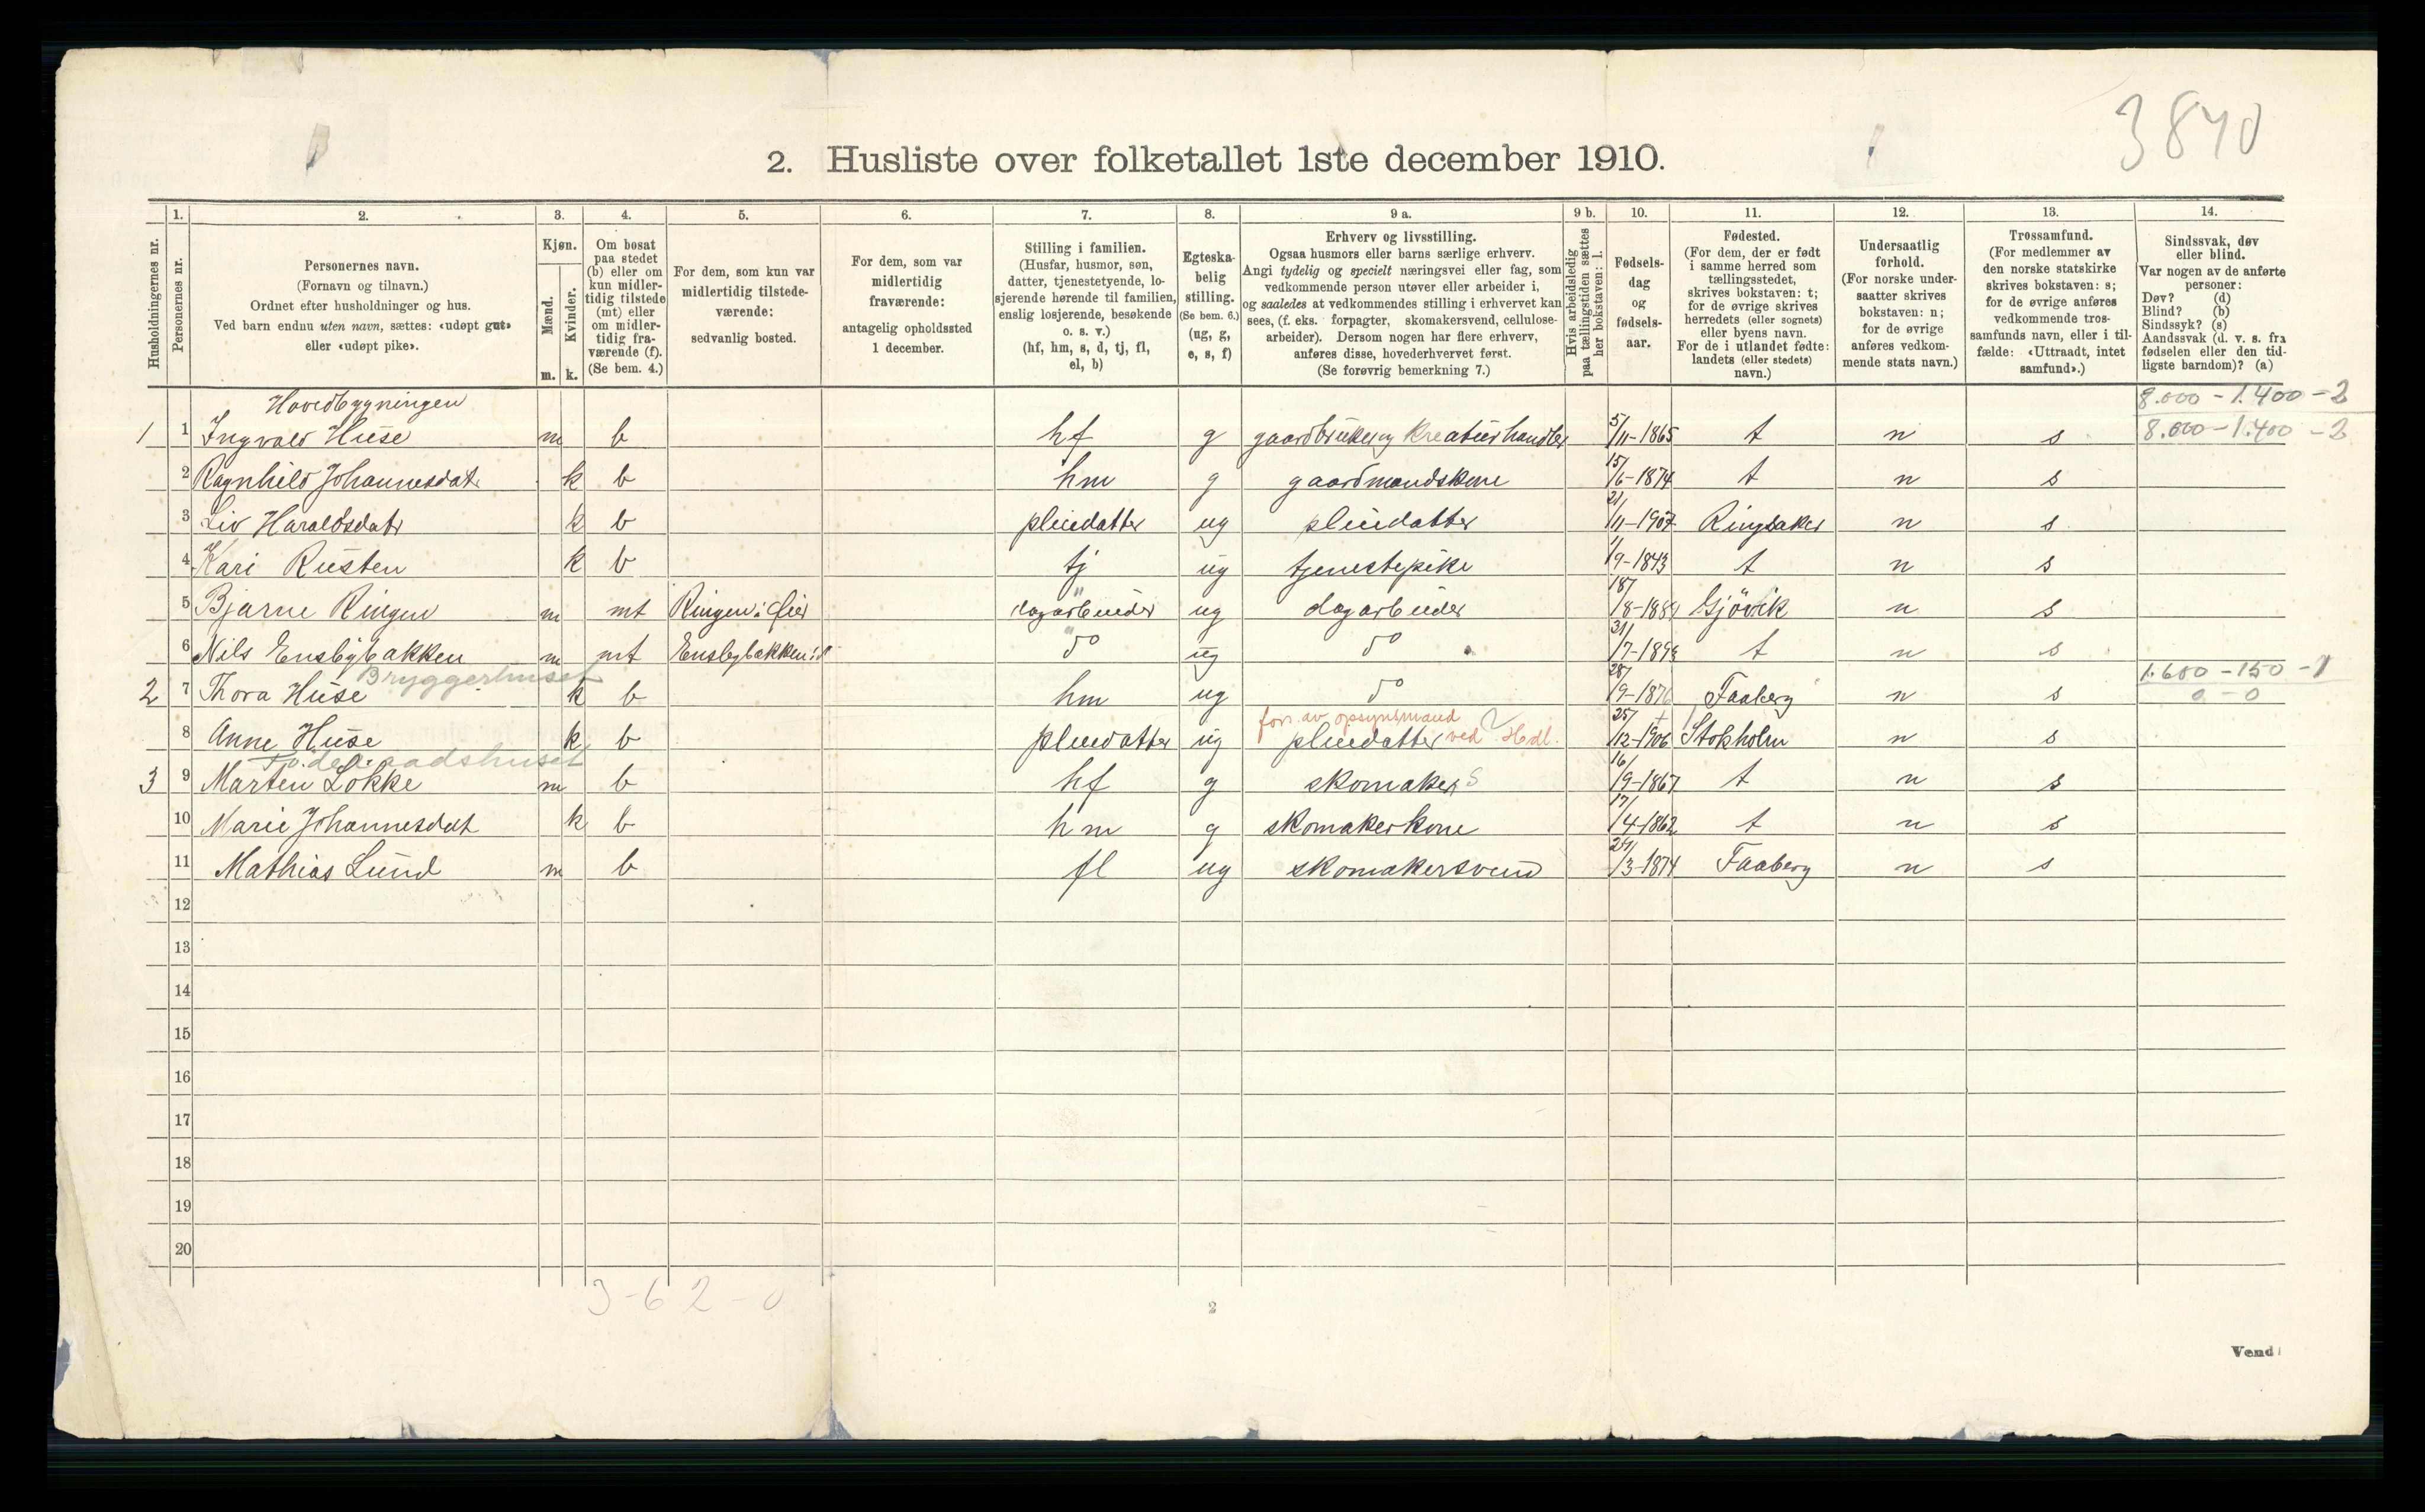 3840
2. Husliste over folketallet 1ste december 1910.
Husholdningernes nr.
1.
Personernes nr.
2.
Personernes navn.
(Fornavn og tilnavn.)
Ordnet efter husholdninger og hus.
Ved barn endnu uten navn, sættes: «udøpt gut»
eller «udøpt pike».
3.
Kjøn.
Mænd.
Kvinder.
m. k.
4.
Om bosat
paa stedet
(b) eller om
kun midler-
tidig tilstede
(mt) eller
om midler-
tidig fra-
værende (f).
(Se bem. 4.)
5.
For dem, som kun var
midlertidig tilstede-
værende:
sedvanlig bosted.
6.
For dem, som var
midlertidig
fraværende:
antagelig opholdssted
1 december.
7.
Stilling i familien.
(Husfar, husmor, søn,
datter, tjenestetyende, lo-
sjerende hørende til familien,
enslig losjerende, besøkende
o. s. v.)
(hf, hm, s, d, tj, fl,
el, b)
8.
Egteska-
belig
stilling.
(Se bem. 6.)
(ug, g,
e, s, f)
9 a.
Erhverv og livsstilling.
Ogsaa husmors eller barns særlige erhverv.
Angi tydelig og specielt næringsvei eller fag, som
vedkommende person utøver eller arbeider i,
og saaledes at vedkommendes stilling i erhvervet kan
sees, (f. eks. forpagter, skomakersvend, cellulose-
arbeider). Dersom nogen har flere erhverv,
anføres disse, hovederhvervet først.
(Se forøvrig bemerkning 7.)
9 b.
Hvis arbeidsledig
paa tællingstiden sættes
her bokstaven: l.
10.
Fødsels-
dag
og
fødsels-
aar.
11.
Fødested.
(For dem, der er født
i samme herred som
tællingsstedet,
skrives bokstaven: t;
for de øvrige skrives
herredets (eller sognets)
eller byens navn.
For de i utlandet fødte:
landets (eller stedets)
navn.)
12.
Undersaatlig
forhold.
(For norske under-
saatter skrives
bokstaven: n;
for de øvrige
anføres vedkom-
mende stats navn.)
13.
Trossamfund.
(For medlemmer av
den norske statskirke
skrives bokstaven: s;
for de øvrige anføres
vedkommende tros-
samfunds navn, eller i til-
fælde: «Uttraadt, intet
samfund».)
14.
Sindssvak, døv
eller blind.
Var nogen av de anførte
personer:
Døv? (d)
Blind? (b)
Sindssyk? (s)
Aandssvak (d. v. s. fra
fødselen eller den tid-
ligste barndom)? (a)
Hovedbygningen 8.000 - 1.400 - 2
1 1 Ingvald Huse m b hf g gaardbruker og kreaturhandler 5/11-1865 t n s 8.000 - 1.400 - 2
2 Ragnhild Johannesdatr k b hm g gaardmandskone 15/6-1874 t n s
3 Liv Haraldsdatr k b pleiedatter ug pleiedatter 21/11-1907 Ringsaker n s
4 Kari Rusten k b tj ug tjenestepike 1/9-1843 t n s
5 Bjarne Ringen m mt Ringen i Øier dagarbeider ug dagarbeider 18/8-1884 Gjövik n s
6 Nils Ensbybakken m mt Ensbybakken i d° d° ug d° 31/7-1893 t n s
Bryggerhuset 1.600 - 150 - 1
2 7 Thora Huse k b hm ug d° 28/9-1876 Faaberg n s 0 - 0
fors. av opsynsmand ved Hdl.
8 Anne Huse k b pleiedatter ug pleiedatter 25/12-1906 Stokholm n s
Föderaadshuset
3 9 Marten Løkke m b hf g skomaker S 16/9-1867 t n s
10 Marie Johannesdat k b hm g skomakerkone 17/4-1862 t n s
11 Mathias Lund m b fl ug skomakersvend 24/3-1874 Faaberg n s
12
13
14
15
16
17
18
19
20
3-6 2-0
2
Vend